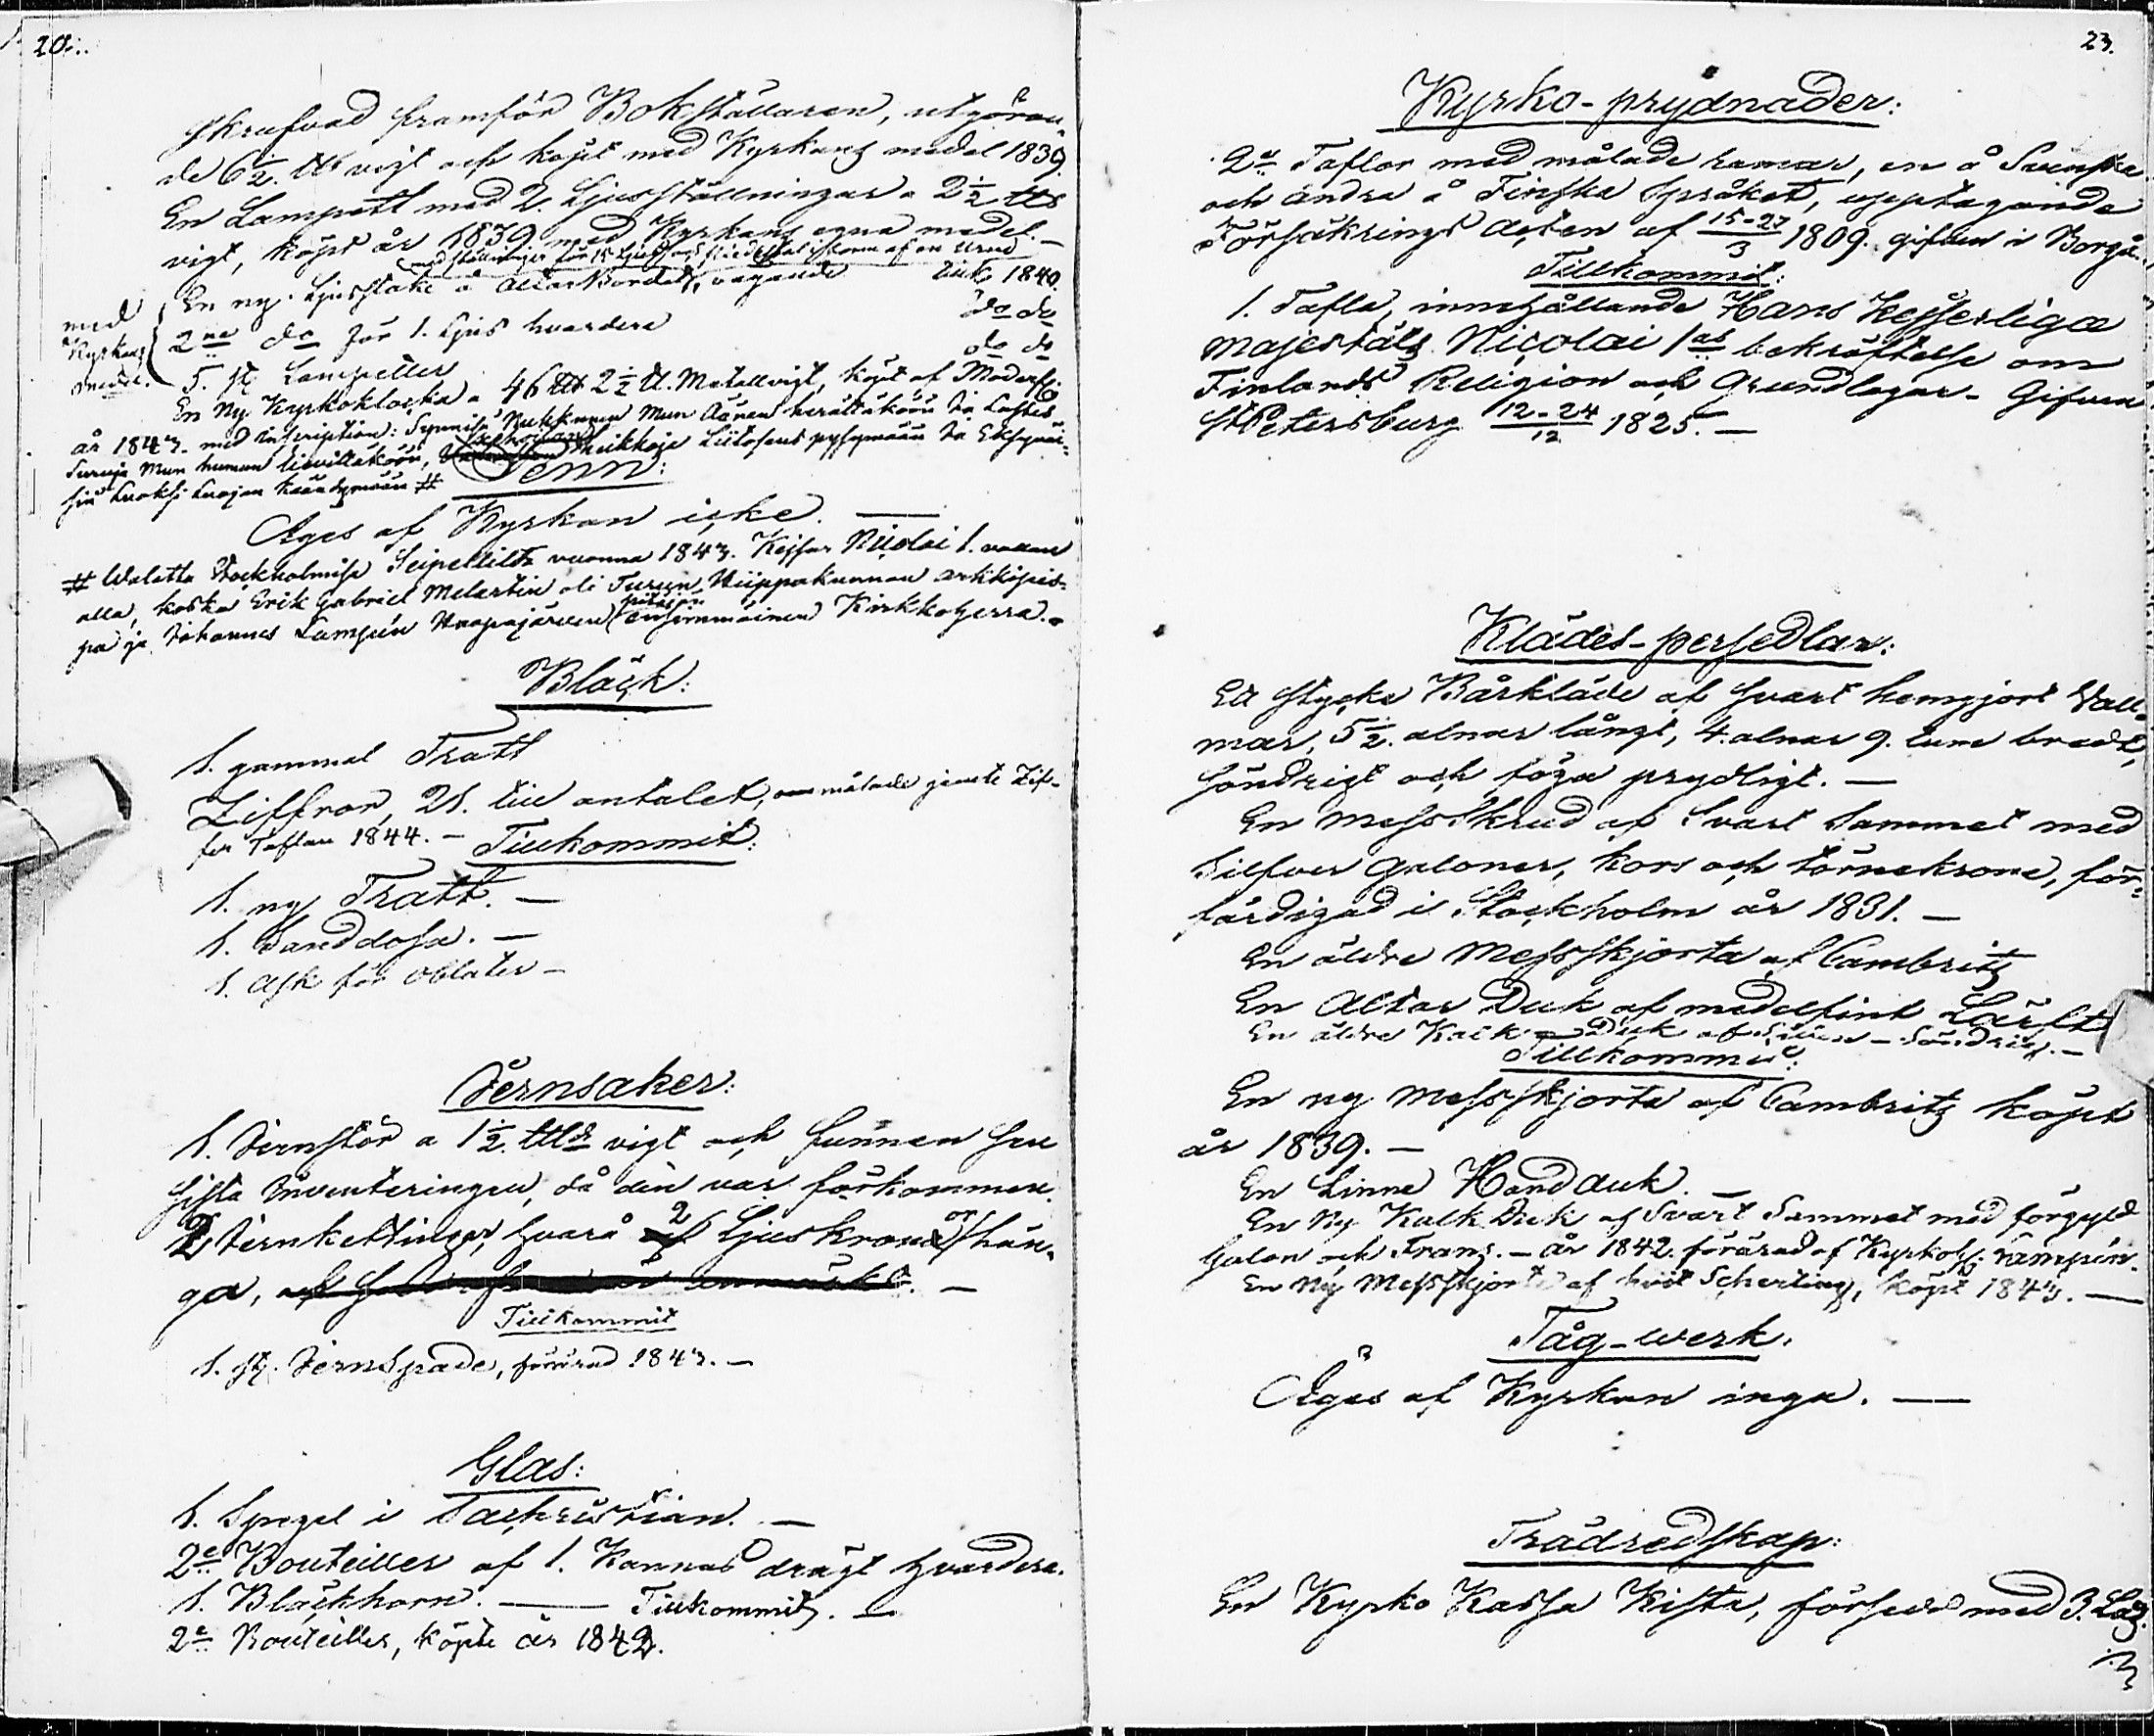 20.
skrufvad framför Bokställaren, utgöran
de 6 1/2. ttb vigt och köpt med Kyrkans medel 1839.
En Lampett med 2. Ljusställningar a 2 1/2 ttb
vigt, köpt år 1839 med Kyrkans egna medel.-
med ställningar för 15 Ljus och Piedestal i form af en Urna
En ny Ljusstake å Altar Bordet, vägande ink. 1840.
med Kyrkans medel.
2ne do för 1. Ljus hvardera do do
5. st. Lampetter do do
En Ny Kyrkoklocka a 46 ttb 2 1/2 tt. Metallvigt, köpt af
år 1843. med inscription: Synnisä Nukkuneen Mun Ääneen herättäköön Ja Lasten
Suruja Mun humun lievittäköön, Meikkoja Liitosens pysymään Ja Eksynei-
siä Luoksi Luojan kääntymään #
Tenn:
Äges af Kyrkan icke. —
# Walettu Stockholmissa Seipelliltä vuonna 1843. Kejsar Nicolai 1. vallan
alla, koska Erik Gabriel Melartin oli Turun Hiippakunnan Arkkipis-
pa ja Johannes Lampén pitäjän ensimmäinen Kirkkoherra.-
Bläck:
1. gammal Tratt
Ziffror, 21. till antalet, ommålade jemte Zif-
fer Taflan 1844. - Tillkommit:
1. ny Tratt. -
1. Sanddosa. -
1. Ask för Oblater -
Jernsaker:
1. Jernstör a 1 1/2. ttb vigt och funnen sen
sista Inventeringen, då den var förkommen.
2 Jernkettingar, hvarå 2 Ljuskronor hän-
ga, -
Tillkommit
1. st. Jernspade, förärad 1843. -
Glas:
1. Spegel i Sachristian. -
2e Bouteiller af 1. Kannas drägt hvardera.
1. Bläckhorn. — Tillkommit. -
2e Bouteiller, köpte år 1842.
23.
Kyrko-prydnader:
2e Taflor med målade ramar, en å Svenska
och andra å Finska Språket, upptagande
Försäkrings Acten af 15-27/3 1809. gifven i Borgå.
Tillkommit:
1. Tafla, innehållande Hans Kejserliga
Majestäts Nicolai 1as bekräftelse om
Finlands Religion och Grundlagar - Gifven
St Petersburg 12-24/12 1825. -
Klädes-persedlar:
Ett stycke Bårkläde af svart hemgjort Vall-
mar, 5 1/2. alnar långt, 4. alnar 9. tum bredt,
söndrigt och föga prydligt. -
En Messskrud af Svart Sammet med
Silfver Galoner, kors och törnekrona, för-
färdigad i Stockholm år 1831. -
En äldre Messskjorta af Cambritz
En Altar Duk af medelfint Lärft
En äldre Kalk Duk af Siden - Söndrig. -
Tillkommit:
En ny Messskjorta af Cambritz köpt
år 1839. -
En Linne Handduk. -
En Ny Kalk Duk af Svart Sammet med förgyld
Galon och Frans. - år 1842. förärad af Kyrkoh. Lampén.
En Ny Messskjorta af hvit Scherting, köpt 1843. —
Tåg-werk.
Äges af Kyrkan inga. —
Trädredskap:
En Kyrko Kassa Kista, försedd med 3. Lås.